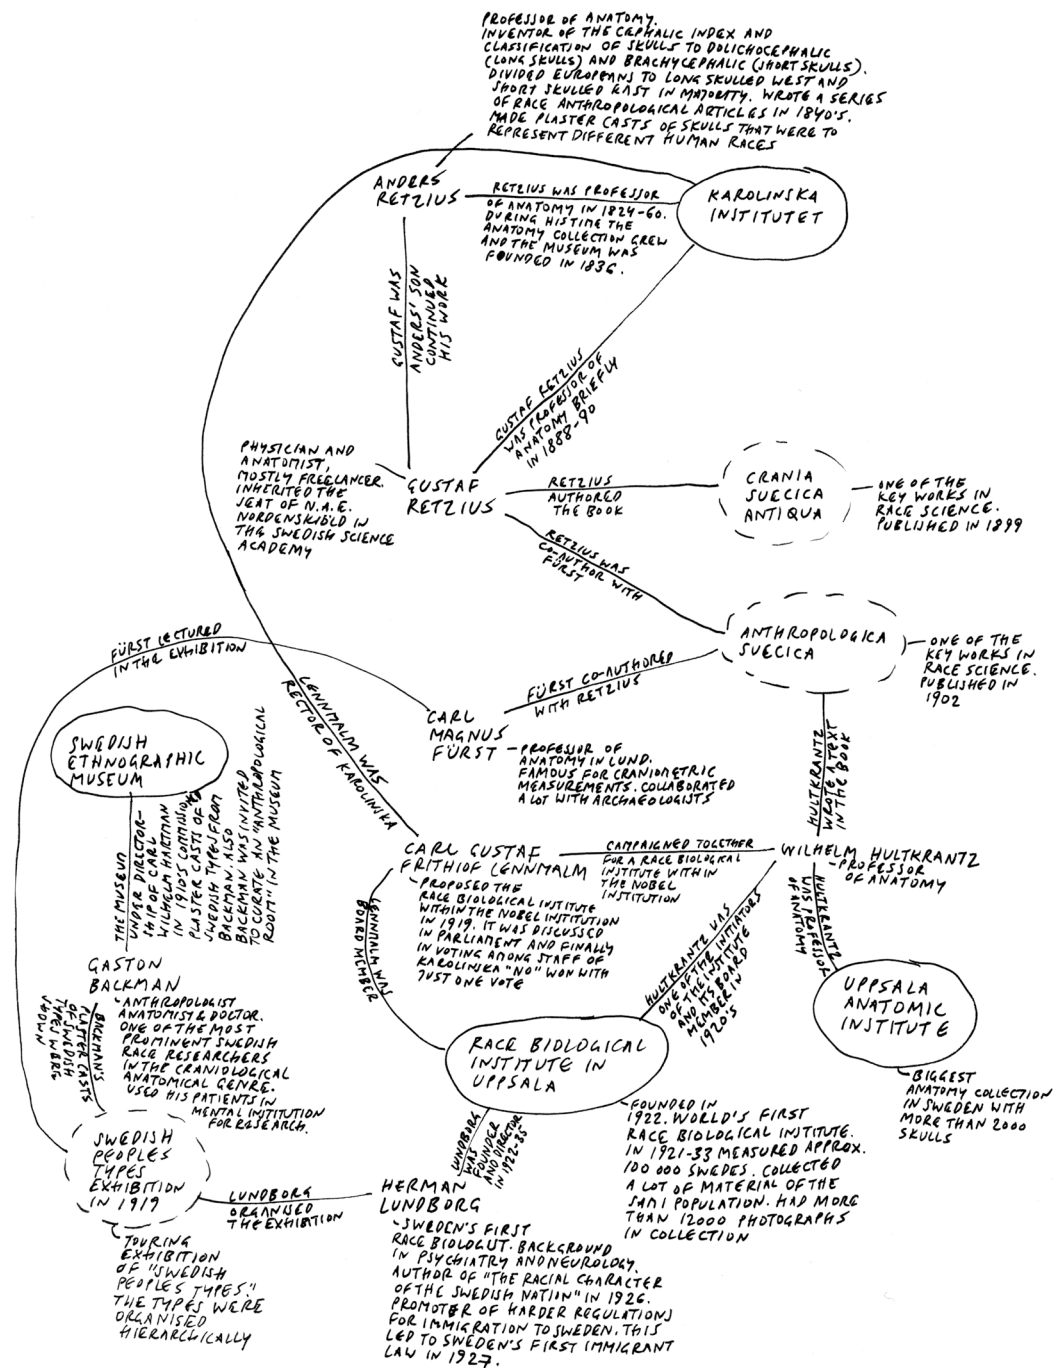 PROFESSOR OF ANATOMY.
INVENTOR OF THE CEPHALIC INDEX AND
CLASSIFICATION OF SKULLS TO DOLICHOCEPHALIC
(LONG SKULLS) AND BRACHYCEPHALIC (SHORT SKULLS).
DIVIDED EUROPEANS TO LONG SKULLED WEST AND
SHORT SKULLED EAST IN MAJORITY. WROTE A SERIES
OF RACE ANTHROPOLOGICAL ARTICLES IN 1840'S.
MADE PLASTER CASTS OF SKULLS THAT WERE TO
REPRESENT DIFFERENT HUMAN RACES
ANDERS
RETZIUS
RETZIUS WAS PROFESSOR
OF ANATOMY IN 1824-60.
DURING HIS TIME THE
ANATOMY COLLECTION GREW
AND THE MUSEUM WAS
FOUNDED IN 1836.
KAROLINSKA
INSTITUTET
GUSTAF WAS
ANDERS' SON
CONTINUED
HIS WORK
GUSTAF RETZIUS
WAS PROFESSOR OF
ANATOMY BRIEFLY
IN 1888-90
PHYSICIAN AND
ANATOMIST,
MOSTLY FREELANCER.
INHERITED THE
SEAT OF N.A.E.
NORDENSKIÖLD IN
THE SWEDISH SCIENCE
ACADEMY
GUSTAF
RETZIUS
RETZIUS
AUTHORED
THE BOOK
CRANIA
SUECICA
ANTIQUA
ONE OF THE
KEY WORKS IN
RACE SCIENCE.
PUBLISHED IN 1899
RETZIUS WAS
CO-AUTHOR WITH
FÜRST
ANTHROPOLOGICA
SUECICA
ONE OF THE
KEY WORKS IN
RACE SCIENCE.
PUBLISHED IN
1902
FÜRST LECTURED
IN THE EXHIBITION
LENNMALM WAS
RECTOR OF KAROLINSKA
FÜRST CO-AUTHORED
WITH RETZIUS
CARL
MAGNUS
FÜRST
PROFESSOR OF
ANATOMY IN LUND.
FAMOUS FOR CRANIOMETRIC
MEASUREMENTS. COLLABORATED
A LOT WITH ARCHAEOLOGISTS
HULTKRANTZ
WROTE A TEXT
IN THE BOOK
SWEDISH
ETHNOGRAPHIC
MUSEUM
THE MUSEUM
UNDER DIRECTOR-
SHIP OF CARL
WILHELM HARTMAN
IN 1910'S COMMISSIO
PLASTER CASTS OF
SWEDISH TYPES FROM
BACKMAN. ALSO
BACKMAN WAS INVITED
TO CURATE AN "ANTHROPOLOGICAL
ROOM" IN THE MUSEUM
CARL GUSTAF
FRITHIOF LENNMALM
CAMPAIGNED TOGETHER
FOR A RACE BIOLOGICAL
INSTITUTE WITHIN
THE NOBEL
INSTITUTION
WILHELM HULTKRANTZ
PROFESSOR
OF ANATOMY
PROPOSED THE
RACE BIOLOGICAL INSTITUTE
WITHIN THE NOBEL INSTITUTION
IN 1919. IT WAS DISCUSSED
IN PARLIAMENT AND FINALLY
IN VOTING AMONG STAFF OF
KAROLINSKA "NO" WON WITH
JUST ONE VOTE
LENNMALM WAS
BOARD MEMBER
HULTKRANTZ WAS
ONE OF THE INITIATORS
OF THE INSTITUTE
AND ITS BOARD
MEMBER IN
1920'S
HULTKRANTZ
WAS PROFESSOR
OF ANATOMY
GASTON
BACKMAN
ANTHROPOLOGIST
ANATOMIST & DOCTOR.
ONE OF THE MOST
PROMINENT SWEDISH
RACE RESEARCHERS
IN THE CRANIOLOGICAL
ANATOMICAL GENRE.
USED HIS PATIENTS IN
MENTAL INSTITUTION
FOR RESEARCH.
BACKMAN'S
PLASTER CASTS
OF SWEDISH
TYPES WERE
SHOWN
UPPSALA
ANATOMIC
INSTITUTE
BIGGEST
ANATOMY COLLECTION
IN SWEDEN WITH
MORE THAN 2000
SKULLS
RACE BIOLOGICAL
INSTITUTE IN
UPPSALA
FOUNDED IN
1922. WORLD'S FIRST
RACE BIOLOGICAL INSTITUTE.
IN 1921-33 MEASURED APPROX.
100 000 SWEDES. COLLECTED
A LOT OF MATERIAL OF THE
SAMI POPULATION. HAD MORE
THAN 12000 PHOTOGRAPHS
IN COLLECTION
LUNDBORG
WAS
FOUNDER
AND DIRECTOR
IN 1922-35
SWEDISH
PEOPLES
TYPES
EXHIBITION
IN 1919
LUNDBORG
ORGANISED
THE EXHIBITION
HERMAN
LUNDBORG
TOURING
EXHIBITION
OF "SWEDISH
PEOPLES TYPES."
THE TYPES WERE
ORGANISED
HIERARCHICALLY
SWEDEN'S FIRST
RACE BIOLOGIST. BACKGROUND
IN PSYCHIATRY AND NEUROLOGY.
AUTHOR OF "THE RACIAL CHARACTER
OF THE SWEDISH NATION" IN 1926.
PROMOTER OF HARDER REGULATIONS
FOR IMMIGRATION TO SWEDEN. THIS
LED TO SWEDEN'S FIRST IMMIGRANT
LAW IN 1927.